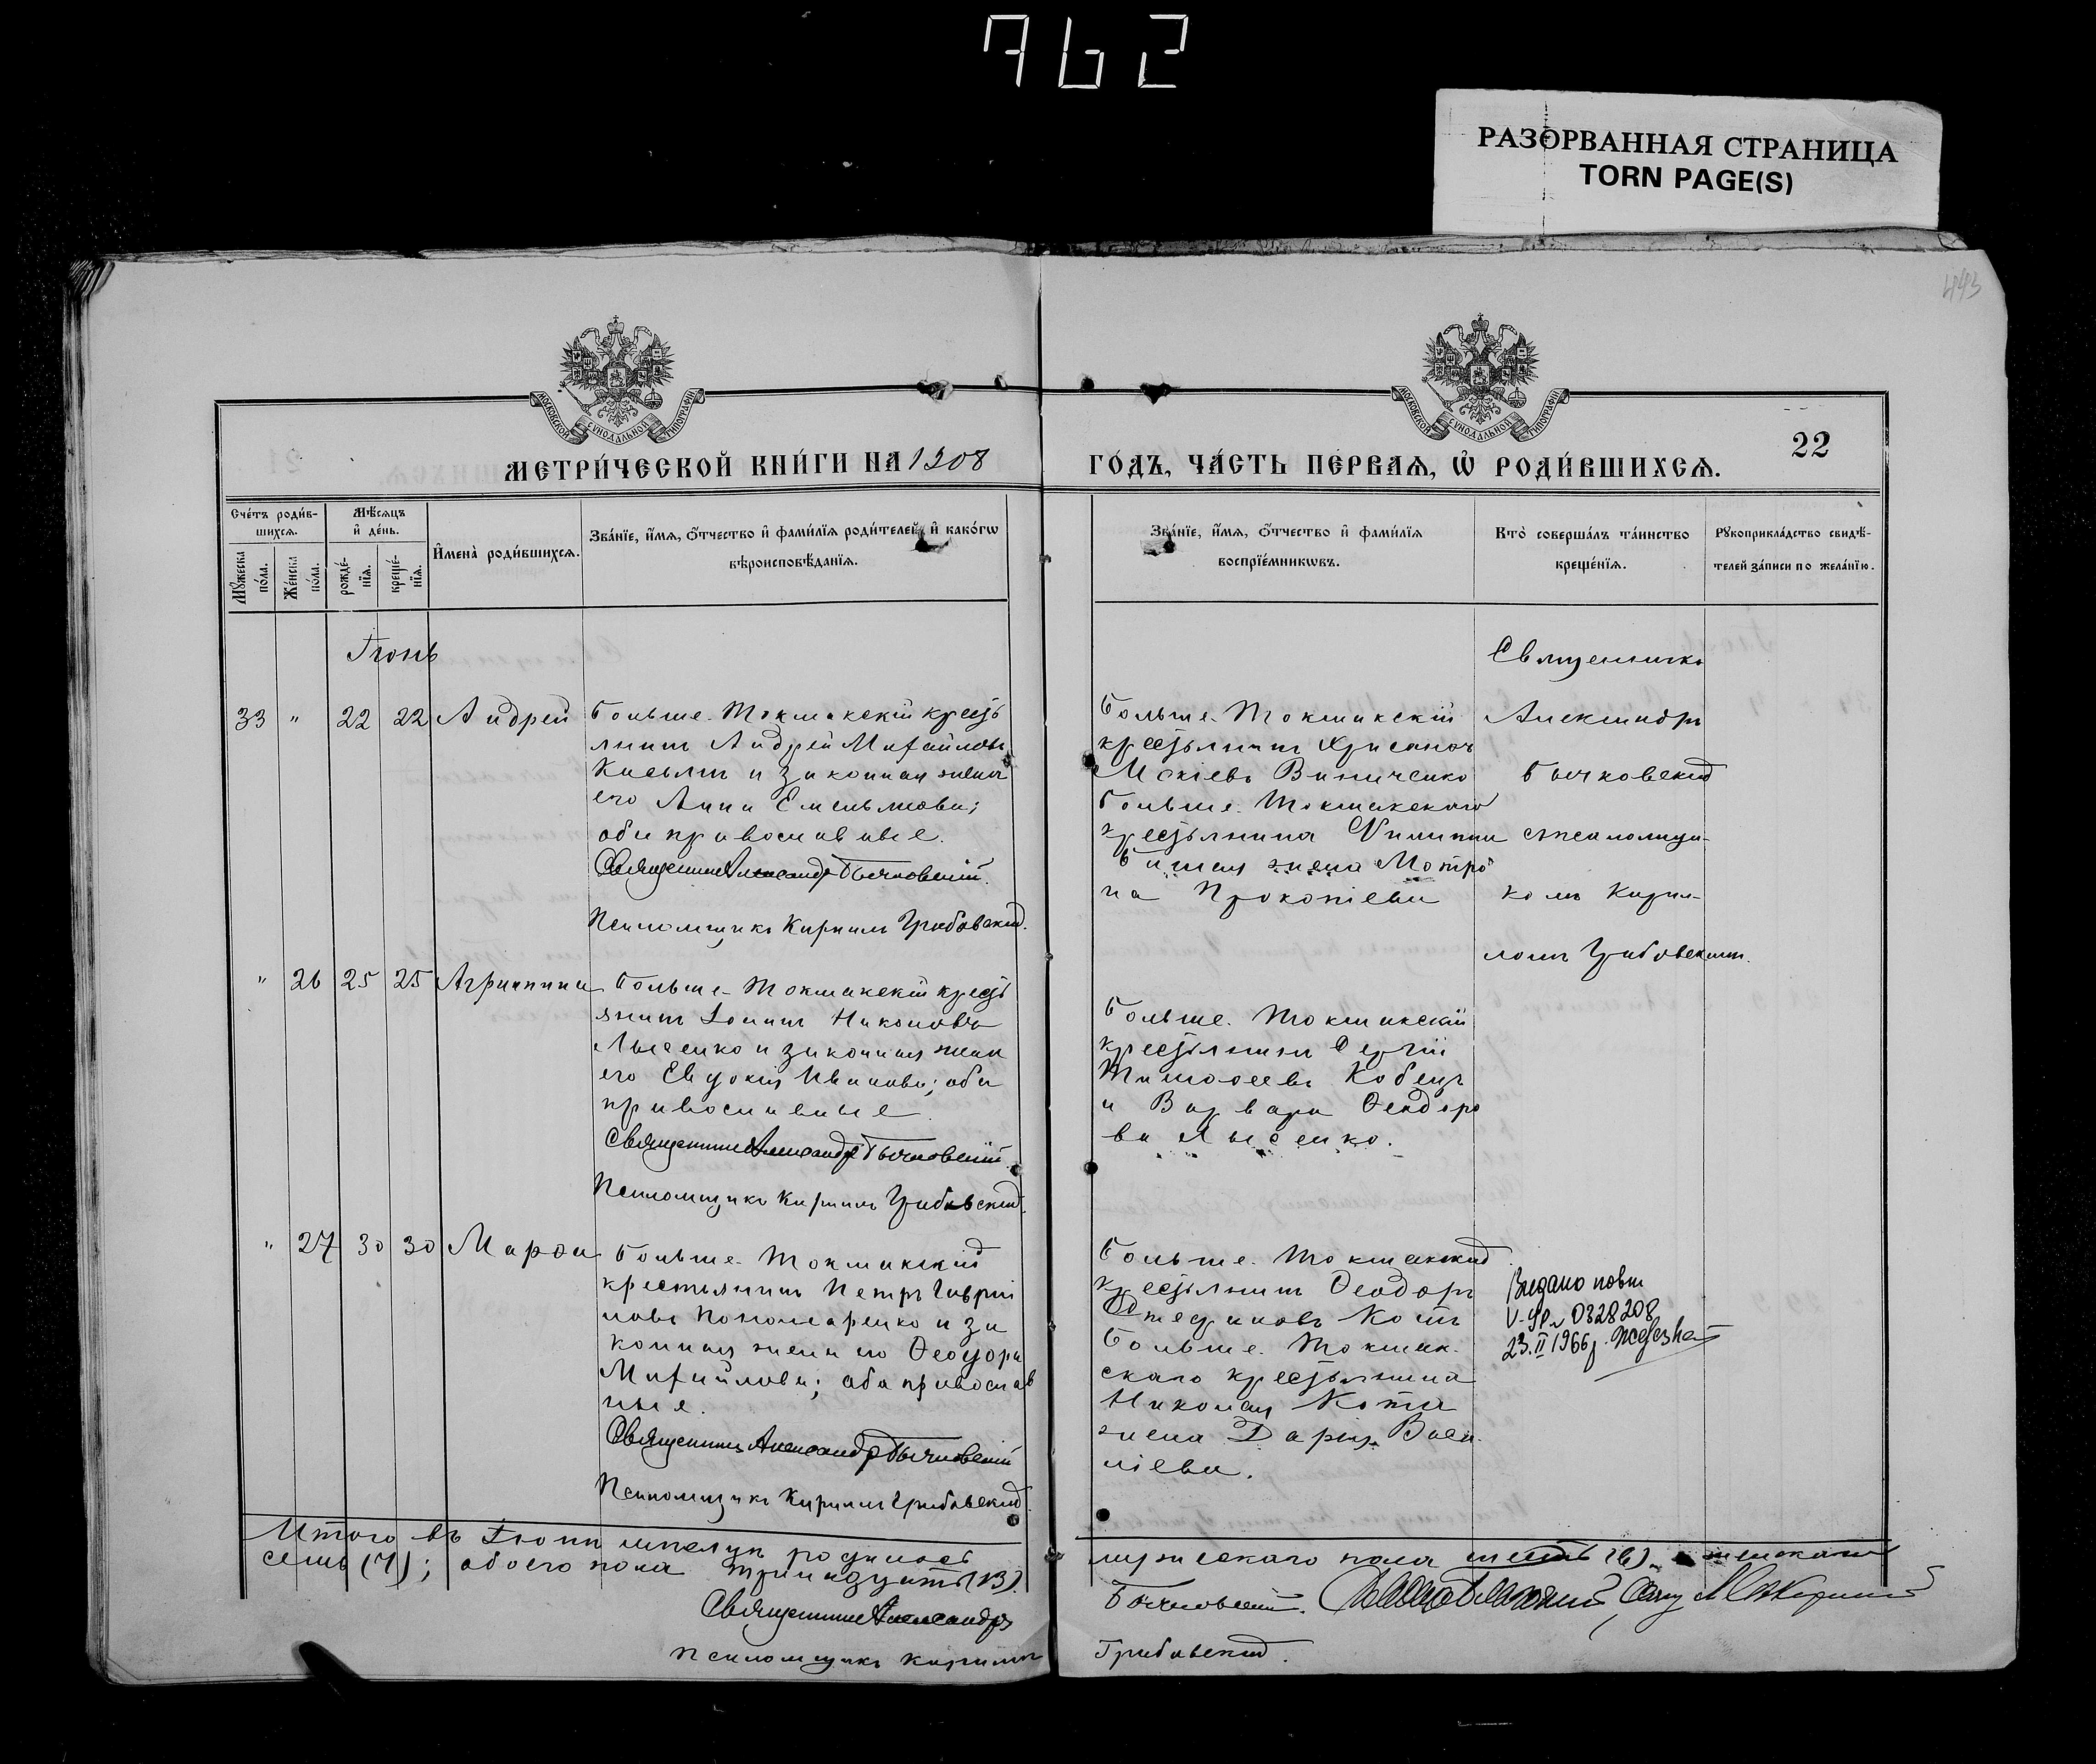 762
РАЗОРВАННАЯ СТРАНИЦА
TORN PAGE(S)
443
МОСКОВСКОЙ СУНОДАЛЬНОЙ ТИПОГРАФІИ
МОСКОВСКОЙ СУНОДАЛЬНОЙ ТИПОГРАФІИ
22
МЕТРИ́ЧЕСКОЙ КНИ́ГИ НА 1908
ГО́ДЪ, ЧА́СТЬ ПЕ́РВАѦ, Ѡ҆ РОДИ́ВШИХСѦ.
Сче́тъ роди́в-
шихсѧ.
Мꙋ́жеска по́ла.
Же́нска по́ла.
Мѣ́сѧцъ
и҆ де́нь.
рожде́-
нїѧ.
креще́-
нїѧ.
И҆мена̀ роди́вшихсѧ.
Зва́нїе, и҆́мѧ, ѻ҆́тчество и҆ фами́лїѧ роди́телей, и҆ како́гѡ
вѣроисповѣ́данїѧ.
Зва́нїе, и҆́мѧ, ѻ҆́тчество и҆ фами́лїѧ
воспрїе́мникѡвъ.
Кто̀ соверша́лъ та́инство
креще́нїѧ.
Рꙋкоприкла́дство свидѣ́-
телей за́писи по жела́нїю.
Іюнь
33 " 22 22 Андрей
Больше-Токмакскій крестья
нинъ Андрей Михайловъ
Касьянъ и законная жена
его Анна Емельянова;
оба православные.
Священникъ Александръ Бычковскій.
Псаломщикъ Кириллъ Грибовскій.
Больше-Токмакскій
крестьянинъ Хрисанѳъ
Винниченко
Больше-Токмакского
крестьянина Филиппа
жена Матро
на Прокопіева
Священникъ
Александръ
Бычковскій
съ псаломщи-
комъ Кирил-
ломъ Грибовскимъ.
" 26 25 25 Агриппина
Больше-Токмакскій кресть
янинъ Іоаннъ Никоновъ
Лысенко и законная жена
его Евдокія Иванова; оба
православные
Священникъ Александръ Бычковскій.
Псаломщикъ Кириллъ Грибовскій.
Больше-Токмакскій
крестьянинъ Сергій
Тимоѳеевъ Кобецъ
и Варвара Ѳеодоро
ва Лысенко.
" 27 30 30 Марѳа
Больше-Токмакскій
крестьянинъ Петръ Гаврiи
ловъ Пономаренко и за
конная жена его Ѳеодора
Михайлова; оба православ
ные.
Священникъ Александръ Бычковскій
Псаломщикъ Кириллъ Грибовскій.
Больше-Токмакскій
крестьянинъ Ѳеодоръ
Стефановъ Котъ
Больше-Токмак-
скаго крестьянина
Николая Кота
жена Дарія Васи
ліева.
Видано повт
0328208
23.II 1966р.
Итого въ Іюнѣ мѣсяцѣ родилось
мужескаго пола шесть (6), женскаго
семь (7); обоего пола тринадцать (13).
Священникъ Александръ
Бычковскій.
Псаломщикъ Кириллъ
Грибовскій.